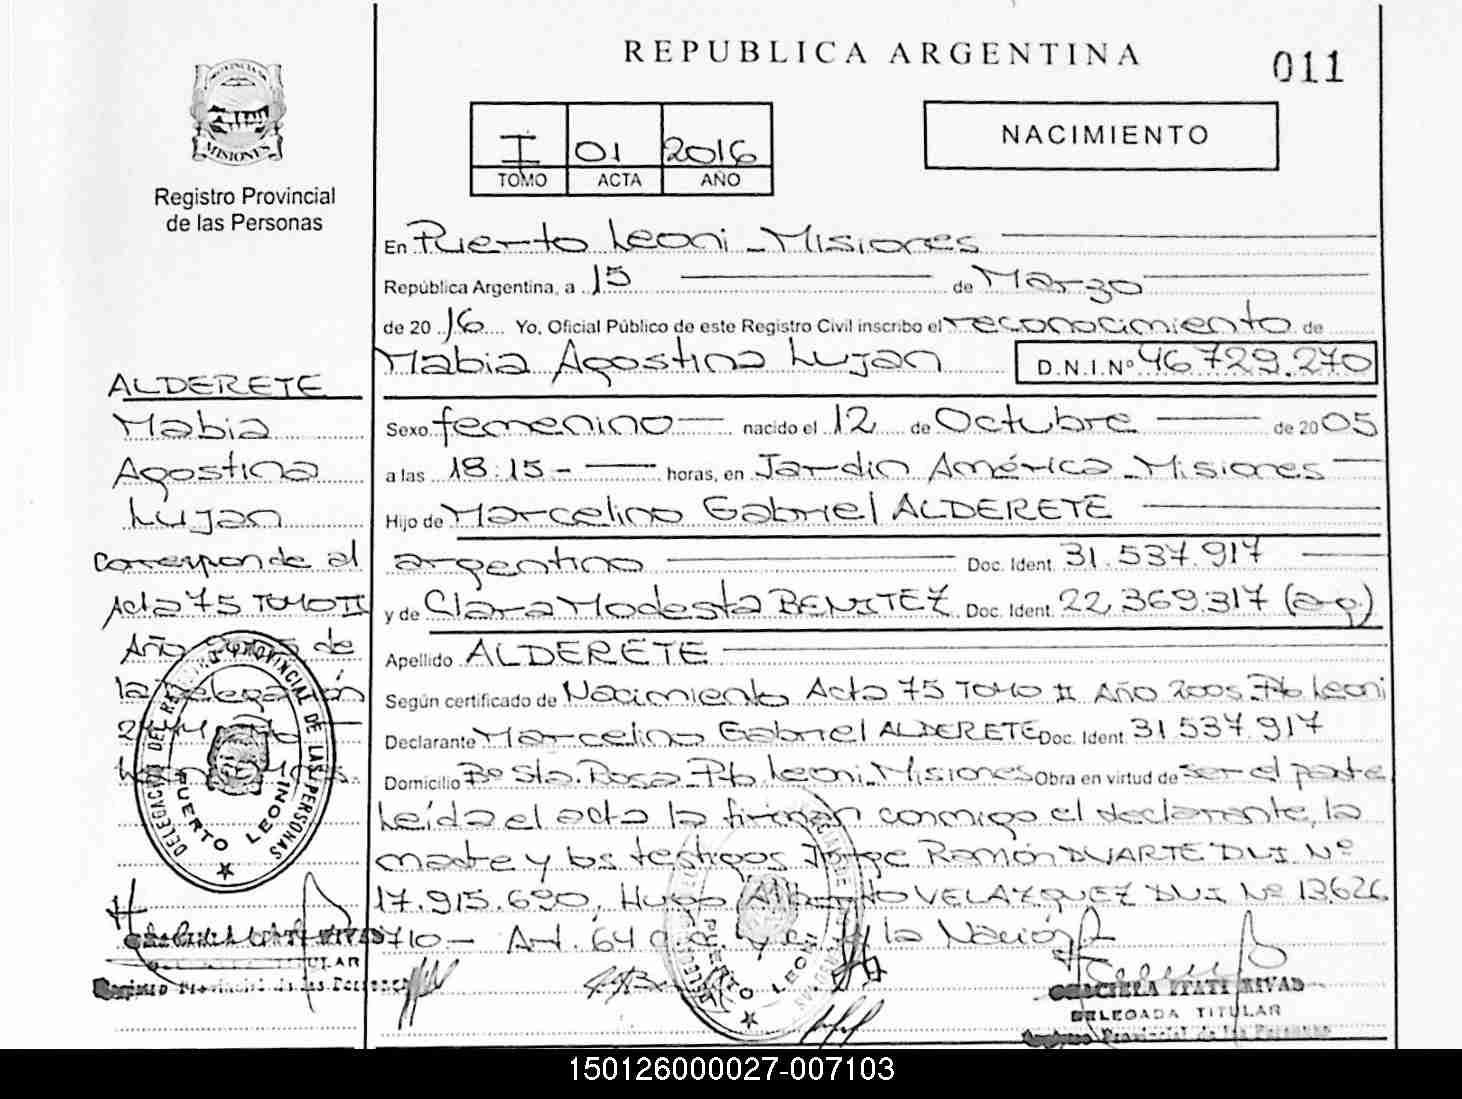 REPUBLICA ARGENTINA
011
PROVINCIA DE
MISIONES
Registro Provincial
de las Personas
I 01 2016
TOMO ACTA AÑO
NACIMIENTO
En Puerto Leoni - Misiones
República Argentina, a 15 de Marzo
de 2016 Yo, Oficial Público de este Registro Civil inscribo el reconocimiento de
Mabia Agostina Lujan D.N.I. Nº 46.729.270
Sexo femenino nacido el 12 de Octubre de 2005
a las 18:15- horas, en Jardin América - Misiones
Hijo de Marcelino Gabriel ALDERETE
argentino Doc. Ident. 31.537.917
y de Clara Modesta BENITEZ Doc. Ident. 22.369.317 (arg.)
Apellido ALDERETE
Según certificado de Nacimiento Acta 75 TOMO II AÑO 2005 Pto Leoni
Declarante Marcelino Gabriel ALDERETE Doc. Ident. 31.537.917
Domicilio Bº Sta. Rosa - Pto. Leoni - Misiones Obra en virtud de ser el padre
Leída el acta la firman conmigo el declarante, la
madre y los testigos Jorge Ramón DUARTE DNI Nº
17.915.690, Hugo Alberto VELAZQUEZ DNI Nº 13.626
710 - Art. 64 la Nación
GRACIELA ITATI RIVAS
DELEGADA TITULAR
Registro Provincial de las Personas
ALDERETE
Mabia
Agostina
Lujan
Corresponde al
Acta 75 TOMO II
Año 2005 de
la Delegación
DELEGACION DEL REGISTRO PROVINCIAL DE LAS PERSONAS
PUERTO LEONI
GRACIELA ITATI RIVAS
TITULAR
Registro Provincial de las Personas
150126000027-007103